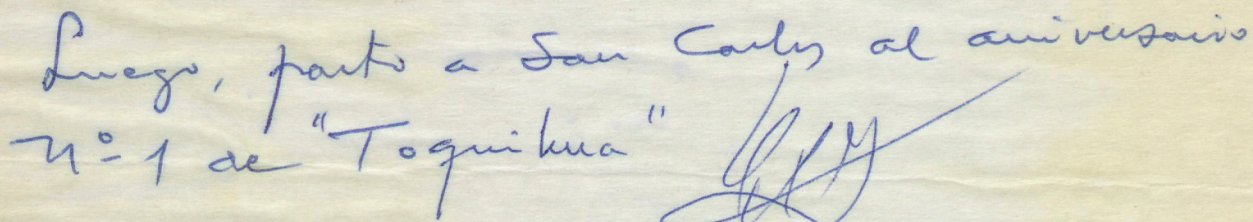 Luego, parto a San Carlos al aniversario
nº 1 de "Toquihua"